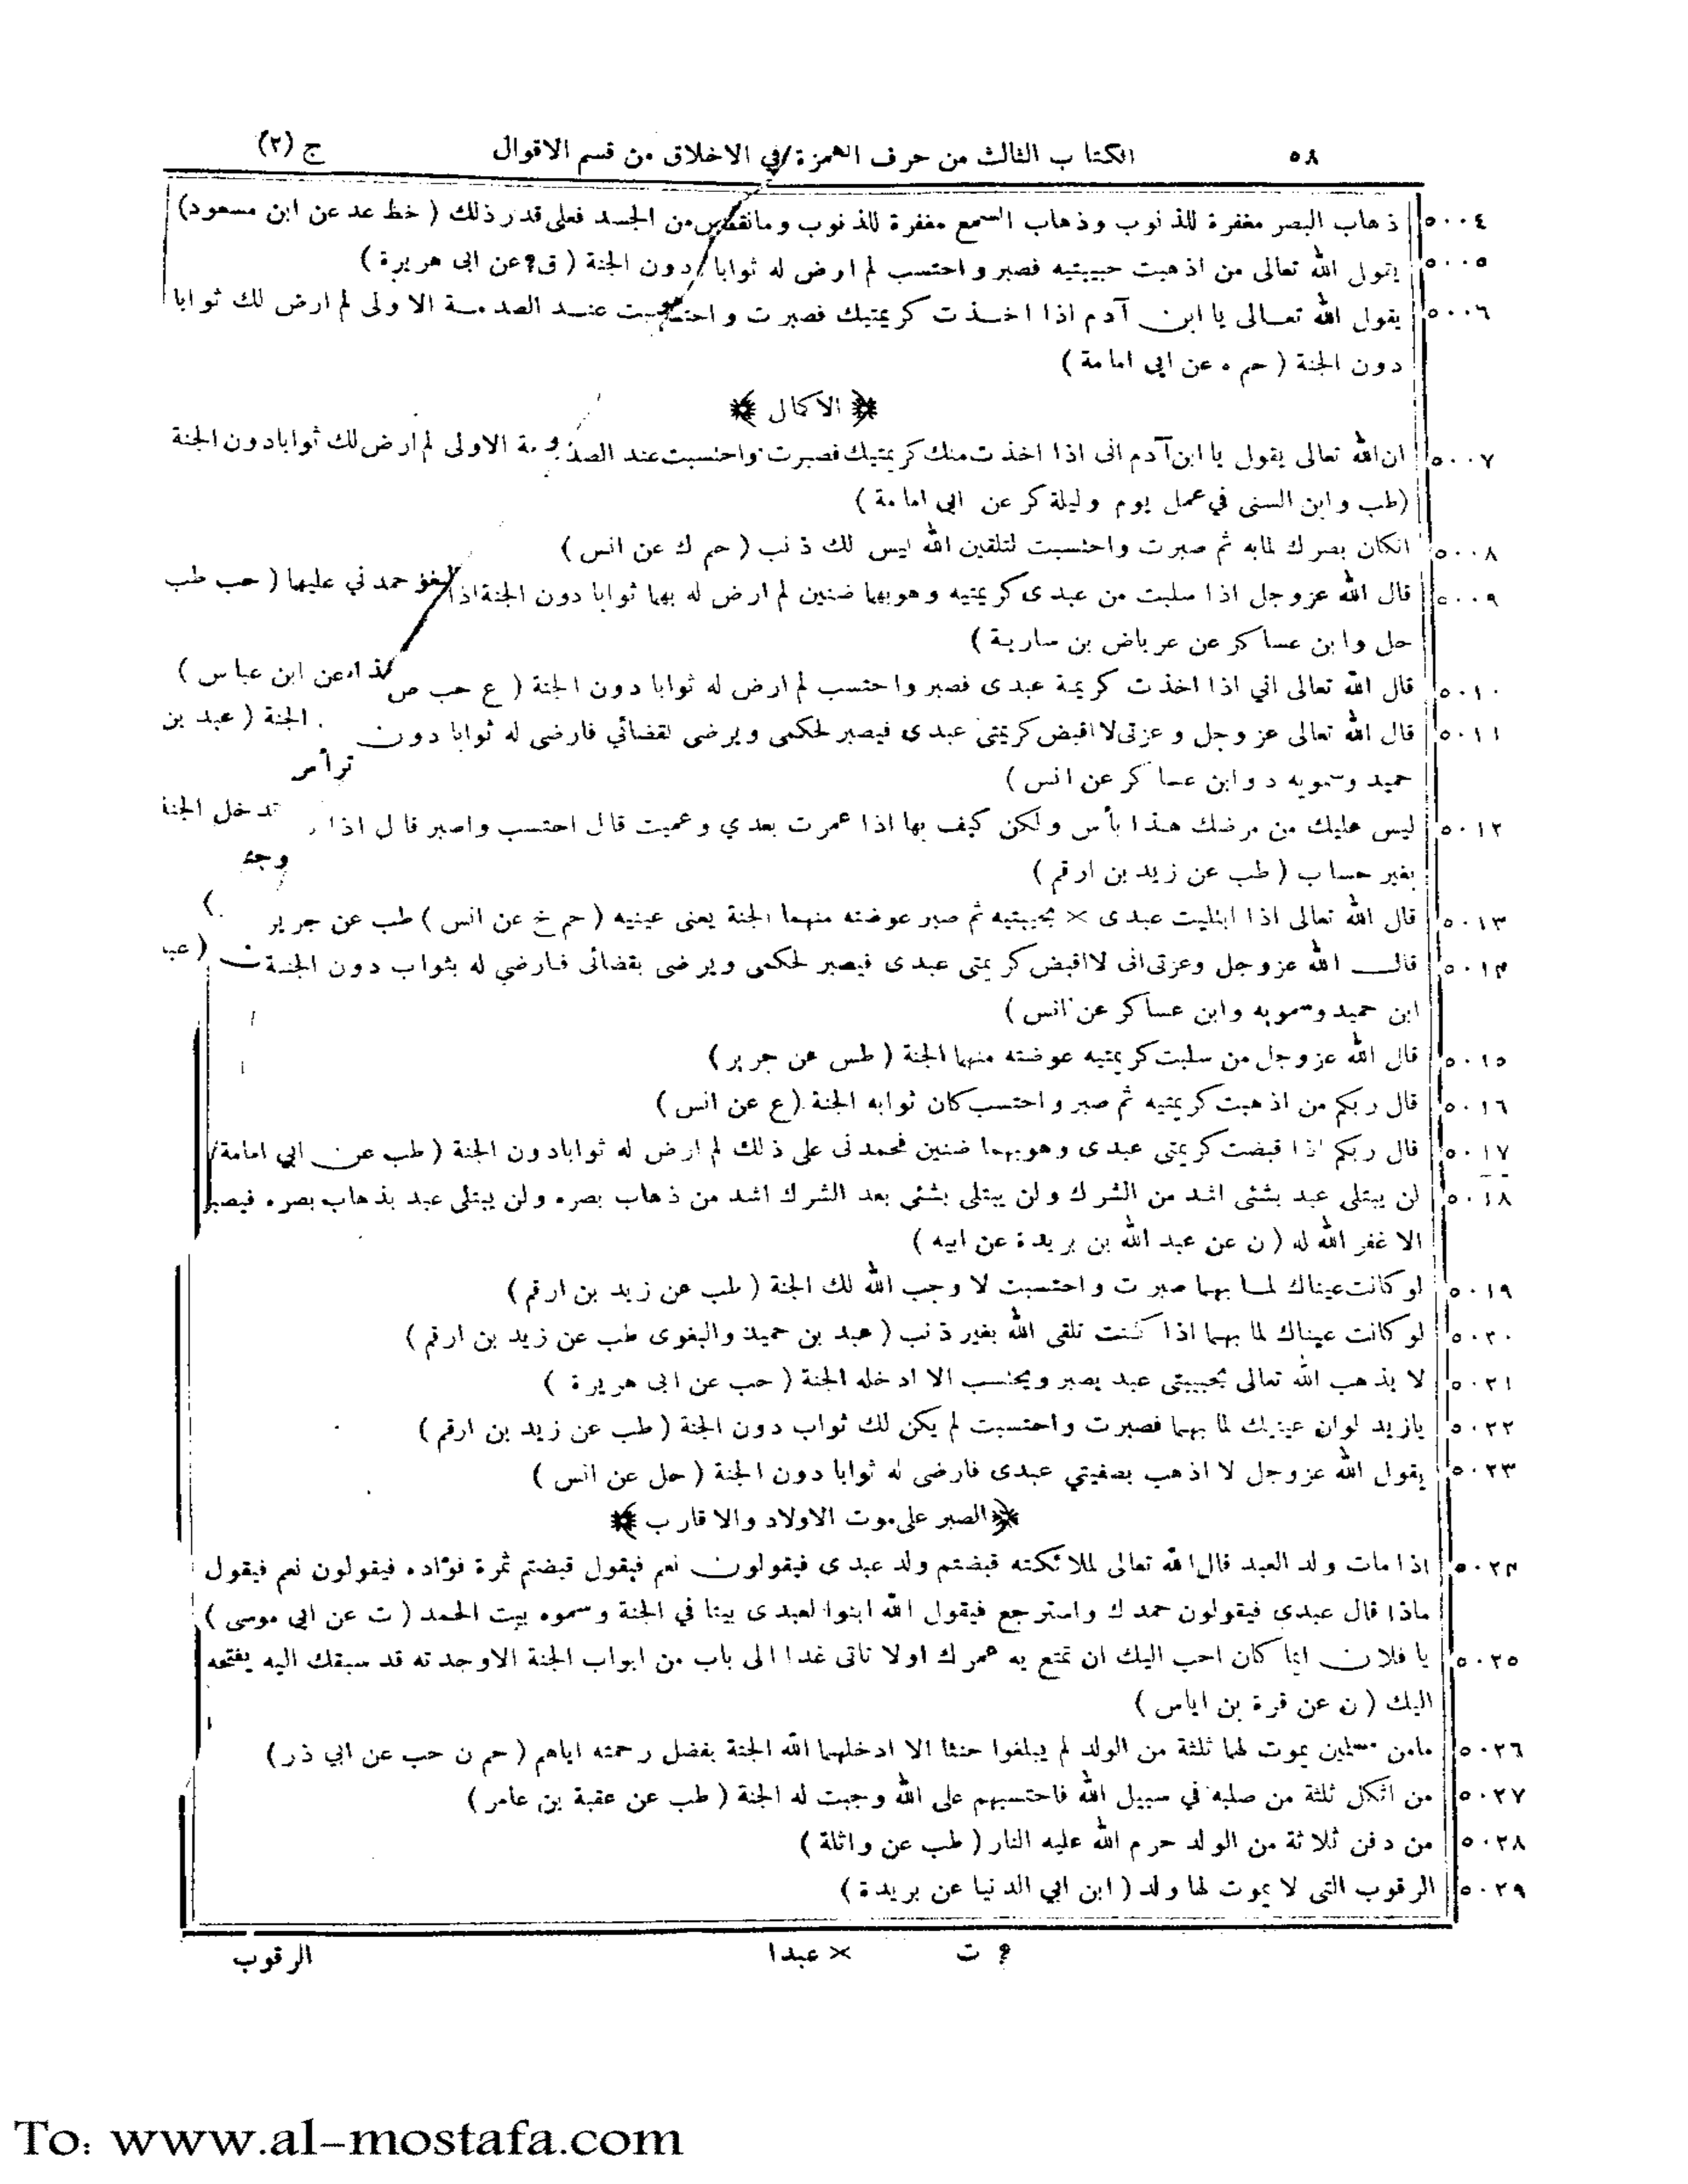 ٥٨ الكتاب الثالث من حرف الهمزة/في الاخلاق من قسم الاقوال ج (٢)
٥٠٠٤ ذهاب البصر مغفرة للذنوب وذهاب السمع مغفرة للذنوب ومانقص من الجسد فعلى قدر ذلك ( خط عد عن ابن مسعود)
٥٠٠٥ يقول الله تعالى من اذهبت حبيبتيه فصبر واحتسب لم ارض له ثوابا دون الجنة ( ق؟عن ابى هريرة )
٥٠٠٦ يقول الله تعالى يا ابن آدم اذا اخذت كريمتيك فصبرت واحتسبت عند الصدمة الاولى لم ارض لك ثوابا
دون الجنة ( حم ه عن ابى امامة )
﴿ الاكمال ﴾
٥٠٠٧ ان الله تعالى يقول يا ابن آدم انى اذا اخذت منك كريمتيك فصبرت واحتسبت عند الصدمة الاولى لم ارض لك ثوابا دون الجنة
(طب وابن السنى في عمل يوم وليلة كر عن ابى امامة )
٥٠٠٨ انكان بصرك لمابه ثم صبرت واحتسبت لتلقين الله ليس لك ذنب ( حم ك عن انس )
٥٠٠٩ قال الله عزوجل اذا سلبت من عبدى كريمتيه وهوبهما ضنين لم ارض له بهما ثوابا دون الجنة اذا حمدني عليها ( حب طب
حل وابن عساكر عن عرباض بن سارية )
٥٠١٠ قال الله تعالى اني اذا اخذت كريمة عبدى فصبر واحتسب لم ارض له ثوابا دون الجنة ( ع حب ض عن ابن عباس )
٥٠١١ قال الله تعالى عز وجل وعزتى لا اقبض كريمتى عبدى فيصبر لحكمى ويرضى لقضائي فارضى له ثوابا دون الجنة ( عبد بن
حميد وسمويه د وابن عساكر عن انس )
٥٠١٢ ليس عليك من مرضك هذا بأس ولكن كيف بها اذا عمرت بعدي وعميت قال احتسب واصبر قال اذا تدخل الجنة
بغير حساب ( طب عن زيد بن ارقم )
٥٠١٣ قال الله تعالى اذا ابتليت عبدى × بحبيبتيه ثم صبر عوضته منهما الجنة يعنى عينيه ( حم خ عن انس ) طب عن جرير )
٥٠١٤ قال الله عزوجل وعزتى انى لااقبض كريمتى عبدى فيصبر لحكمى ويرضى بقضائى فارضي له بثواب دون الجنة ( عبد
ابن حميد وسمويه وابن عساكر عن انس )
٥٠١٥ قال الله عزوجل من سلبت كريمتيه عوضته منهما الجنة ( طس عن جرير )
٥٠١٦ قال ربكم من اذهبت كريمتيه ثم صبر واحتسب كان ثوابه الجنة (ع عن انس )
٥٠١٧ قال ربكم اذا قبضت كريمتى عبدى وهوبهما ضنين فحمدنى على ذلك لم ارض له ثوابادون الجنة ( طب عن ابي امامة)
٥٠١٨ لن يبتلى عبد بشئى اشد من الشرك ولن يبتلى بشئى بعد الشرك اشد من ذهاب بصره ولن يبتلى عبد بذهاب بصره فيصبر
الا غفر الله له ( ن عن عبد الله بن بريدة عن ابيه )
٥٠١٩ لوكانت عيناك لما بهما صبرت واحتسبت لاوجب الله لك الجنة ( طب عن زيد بن ارقم )
٥٠٢٠ لوكانت عيناك لما بهما اذا كنت تلقى الله بغير ذنب ( عبد بن حميد والبغوى طب عن زيد بن ارقم )
٥٠٢١ لا يذهب الله تعالى بحبيبتى عبد يصبر ويحتسب الا ادخله الجنة ( حب عن ابى هريرة )
٥٠٢٢ يازيد لوان عينيك لما بهما فصبرت واحتسبت لم يكن لك ثواب دون الجنة ( طب عن زيد بن ارقم )
٥٠٢٣ يقول الله عزوجل لا اذهب بصفيتي عبدى فارضى له ثوابا دون الجنة ( حل عن انس )
﴿ الصبر على موت الاولاد والاقارب ﴾
٥٠٢٤ اذامات ولد العبد قال الله تعالى لملائكته قبضتم ولد عبدى فيقولون نعم فيقول قبضتم ثمرة فؤاده فيقولون نعم فيقول
ماذا قال عبدى فيقولون حمدك واسترجع فيقول الله ابنوا لعبدى بيتا في الجنة وسموه بيت الحمد ( ت عن ابى موسى )
٥٠٢٥ يا فلان ايما كان احب اليك ان تمتع به عمرك اولا تاتى غدا الى باب من ابواب الجنة الاوجدته قد سبقك اليه يفتحه
اليك ( ن عن قرة بن اياس )
٥٠٢٦ مامن مسلمين يموت لهما ثلثة من الولد لم يبلغوا حنثا الا ادخلهما الله الجنة بفضل رحمته اياهم ( حم ن حب عن ابي ذر)
٥٠٢٧ من اثكل ثلثة من صلبه في سبيل الله فاحتسبهم على الله وجبت له الجنة ( طب عن عقبة بن عامر )
٥٠٢٨ من دفن ثلاثة من الولد حرم الله عليه النار ( طب عن واثلة )
٥٠٢٩ الرقوب التى لا يموت لها ولد ( ابن ابي الدنيا عن بريدة )
؟ ت × عبدا الرقوب
To: www.al-mostafa.com